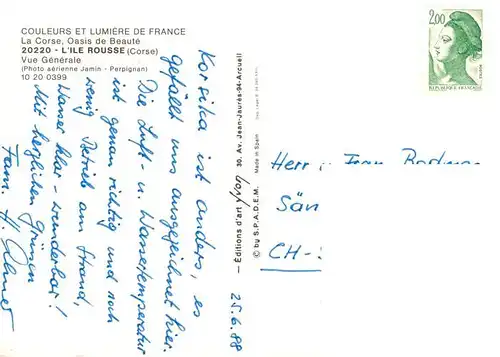 COULEURS ET LUMIÈRE DE FRANCE
La Corse, Oasis de Beauté
20220 - L'ILE ROUSSE (Corse)
Vue Générale
(Photo aérienne Jamin - Perpignan)
10 20 0399
Korsika ist anders, es
gefällt uns ausgezeichnet hier.
Die Luft- u. Wassertemperatur
ist genau richtig und noch
wenig Betrieb am Strand,
Wasser klar - wunderbar!
Mit herzlichen Grüssen
Fam. H.
25.6.88
— Éditions d'art
30, Av. Jean-Jaurès-94-Arcueil
© by S.P.A.D.E.M.
Made in Spain
2,00
REPUBLIQUE FRANÇAISE
Herr u. Frau
Sän
CH-